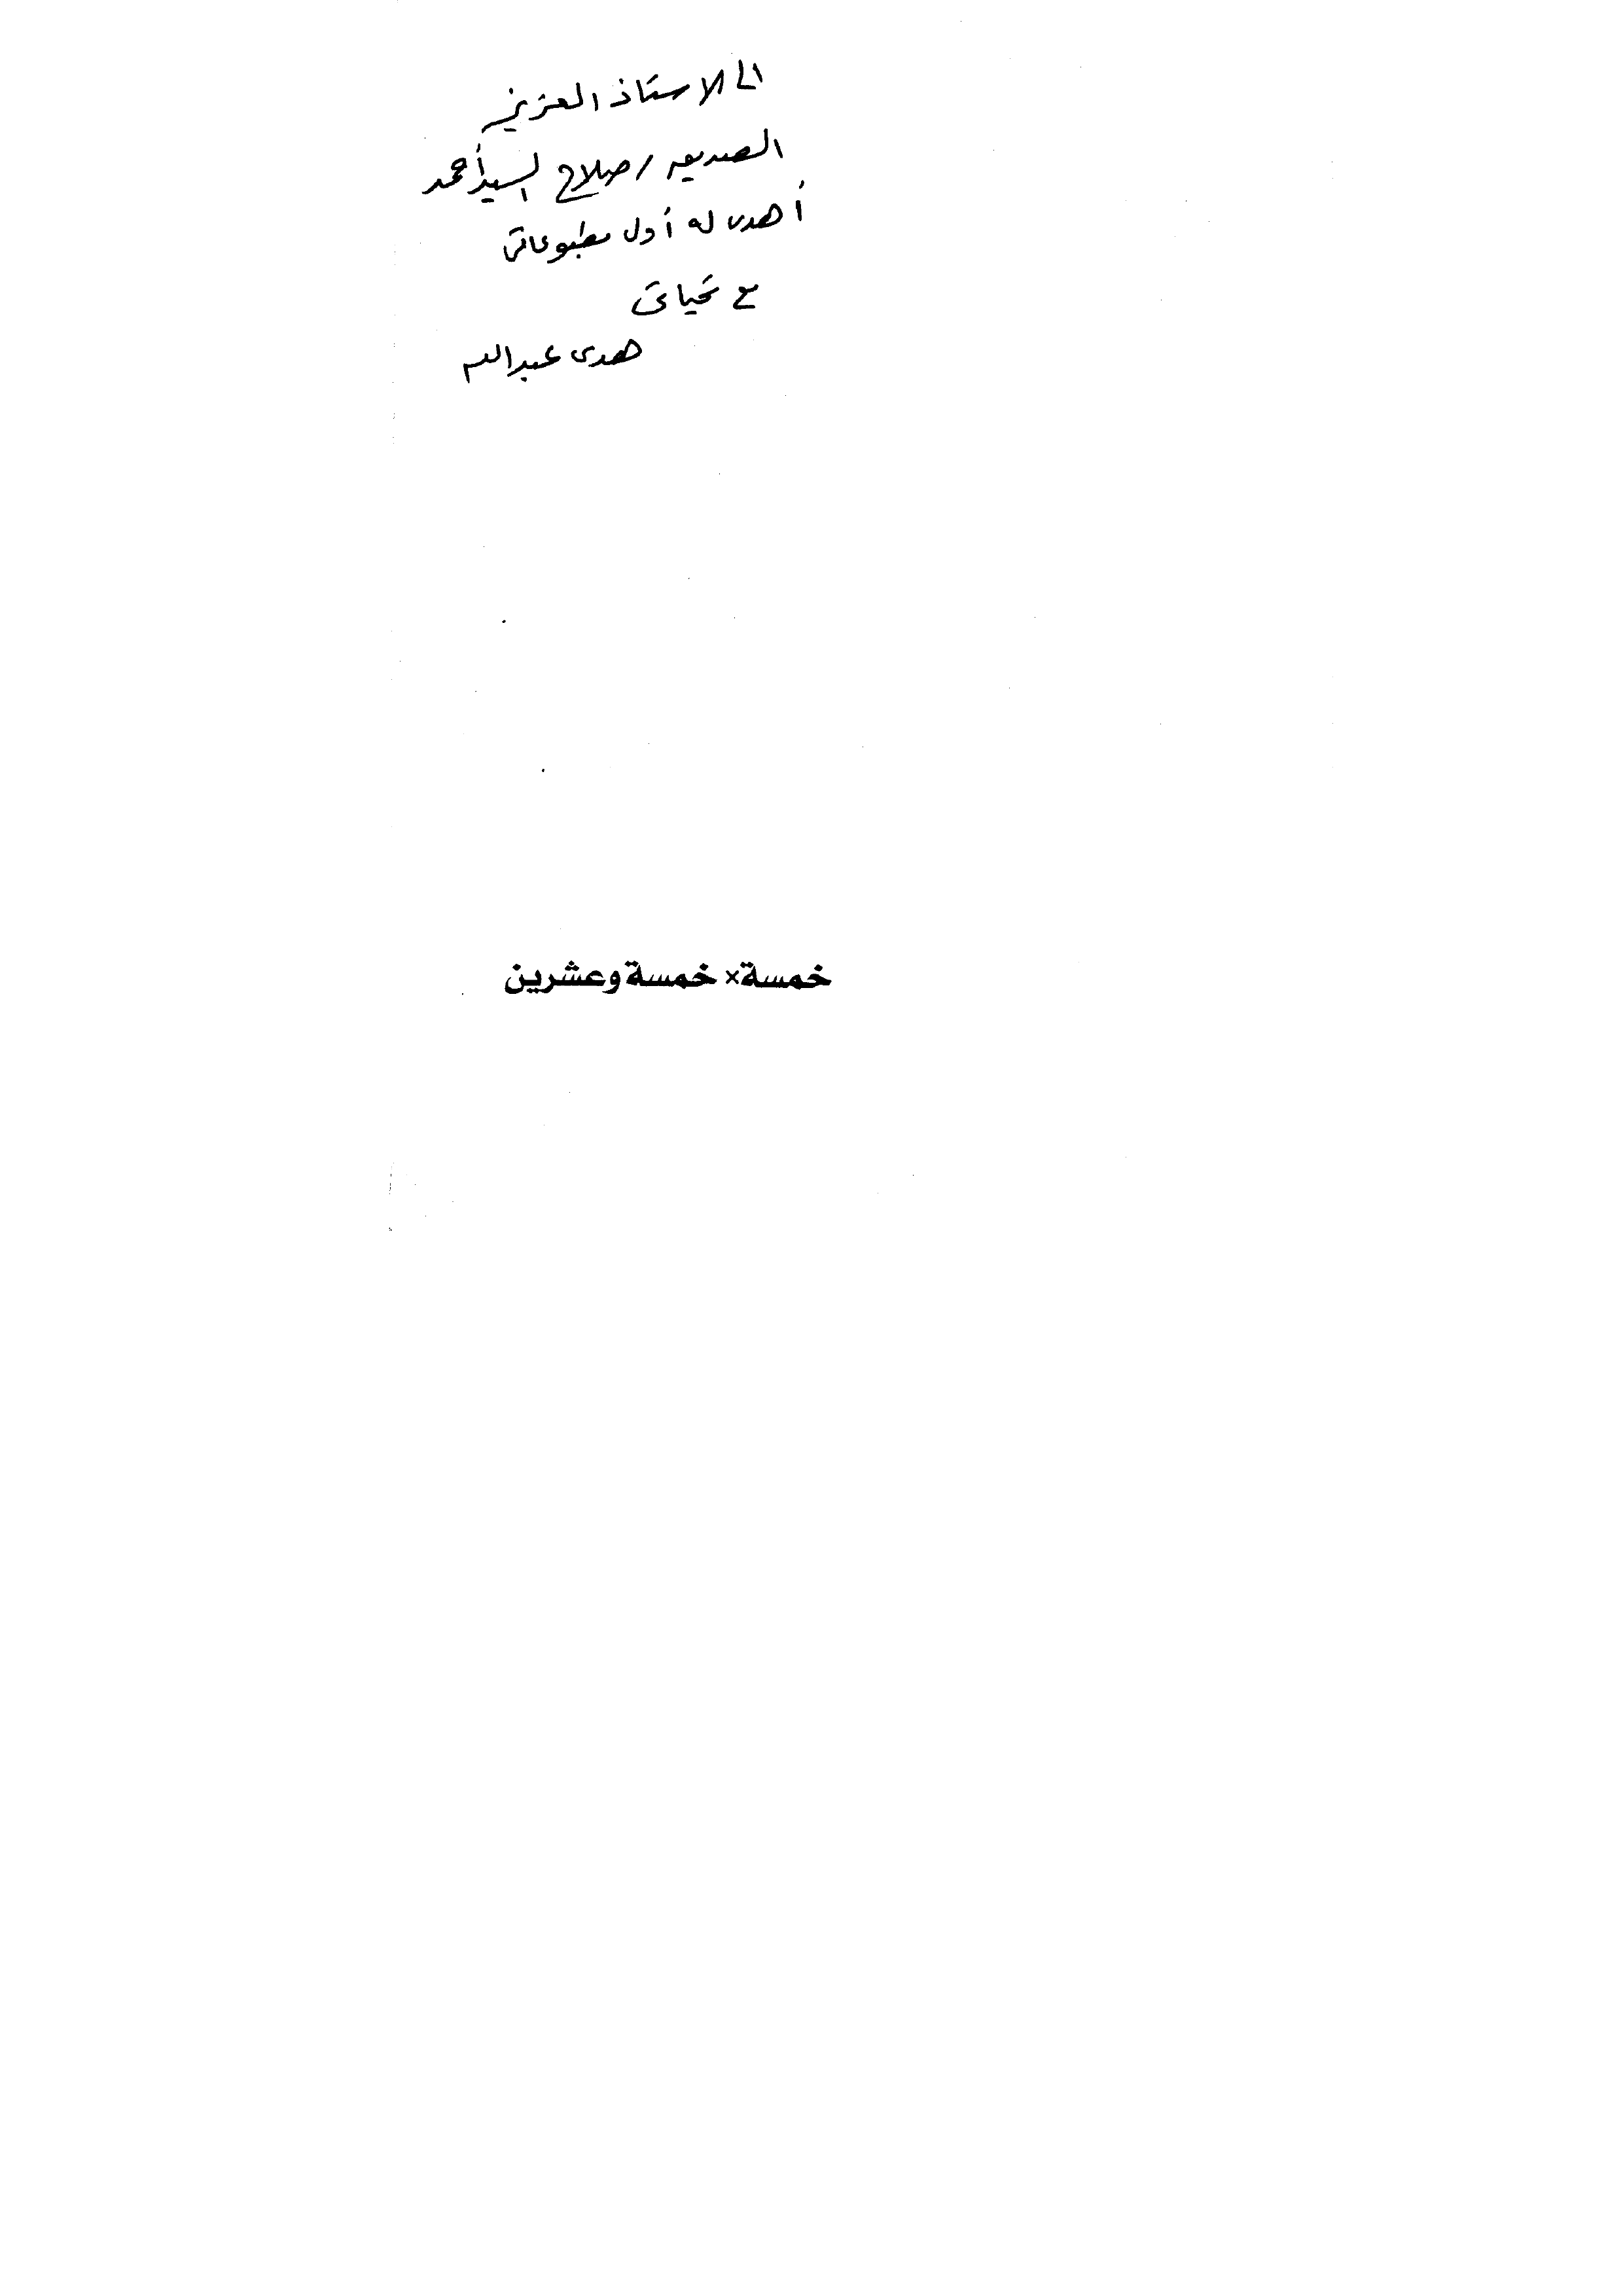 الى الاستاذ العزيز
الصديق / صلاح السيد أحمد
أهدى له أول مطبوعاتى
مع تحياتى
هدى عبدالله
خمسة× خمسة وعشرين